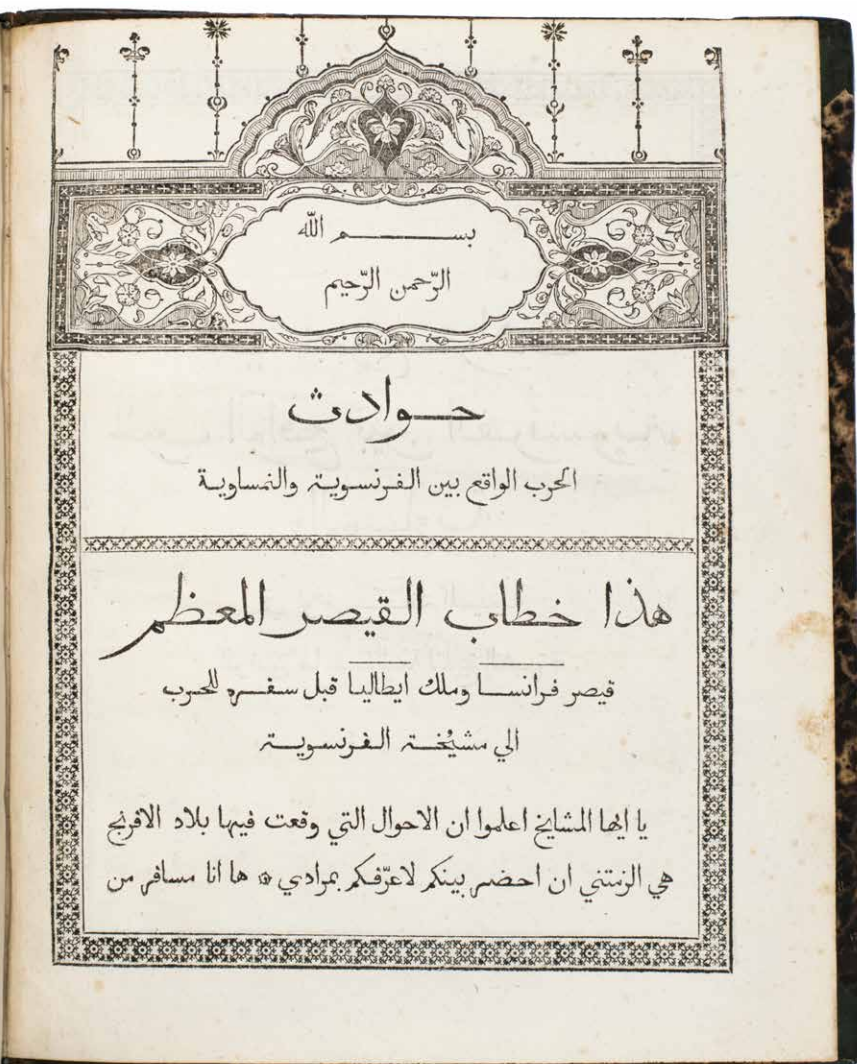 بسم الله
الرّحمن الرّحيم
حوادث
الحرب الواقع بين الفرنسوية والنمساوية
هذا خطاب القيصر المعظم
قيصر فرانسا وملك ايطاليا قبل سفره للحرب
الي مشيخة الفرنسوية
يا ايها المشايخ اعلموا ان الاحوال التي وقعت فيها بلاد الافرنج
هي الزمتني ان احضر بينكم لاعرّفكم بمرادي ۞ ها انا مسافر من